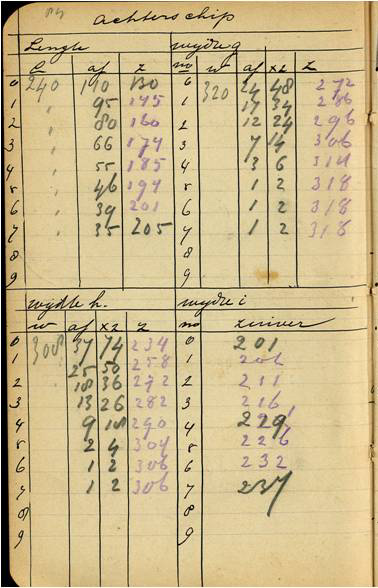 Achterschip
Lengte wydte g
l af z no w af x2 z
0 240 110 130 0 320 24 48 272
1 " 95 145 1 17 34 286
2 " 80 160 2 12 24 296
3 " 66 174 3 7 14 306
4 " 55 185 4 3 6 314
5 " 46 194 5 1 2 318
6 " 39 201 6 1 2 318
7 " 35 205 7 1 2 318
8 8
9 9
wydte h. wydte i
w af x2 z no zuiver
0 308 37 74 234 0 201
1 25 50 258 1 206
2 18 36 272 2 211
3 13 26 282 3 216
4 9 18 290 4
5 2 4 304 5 226
6 1 2 306 6 232
7 1 2 306 7 237
8 8
9 9